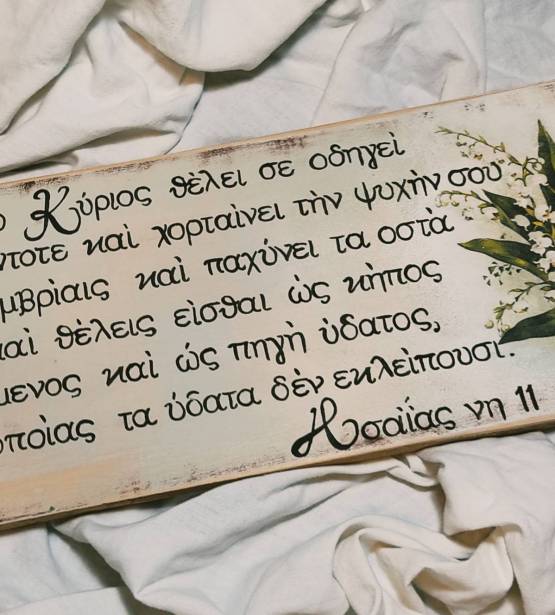 Ο Κύριος θέλει σε οδηγεὶ
ντοτε καὶ χορταίνει τὴν ψυχήν σου
μβρίαις καὶ παχύνει τα οστὰ
καὶ θέλεις εἰσθαι ὡς κῆπος
μενος καὶ ὡς πηγὴ ὑδατος,
οποίας τα ὑδατα δὲν εκλείπουσι.
Ησαΐας νη 11